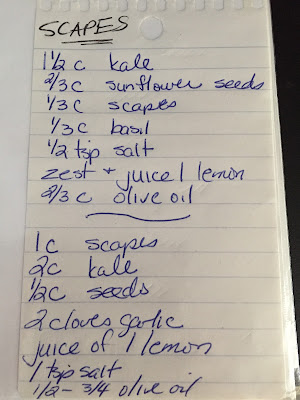 SCAPES
1 1/2 c kale
2/3 c sunflower seeds
1/3 c scapes
1/3 c basil
1/2 tsp salt
zest + juice 1 lemon
2/3 c olive oil
1c scapes
2c kale
1/2c seeds
2 cloves garlic
juice of 1 lemon
1 tsp salt
1/2 - 3/4 olive oil